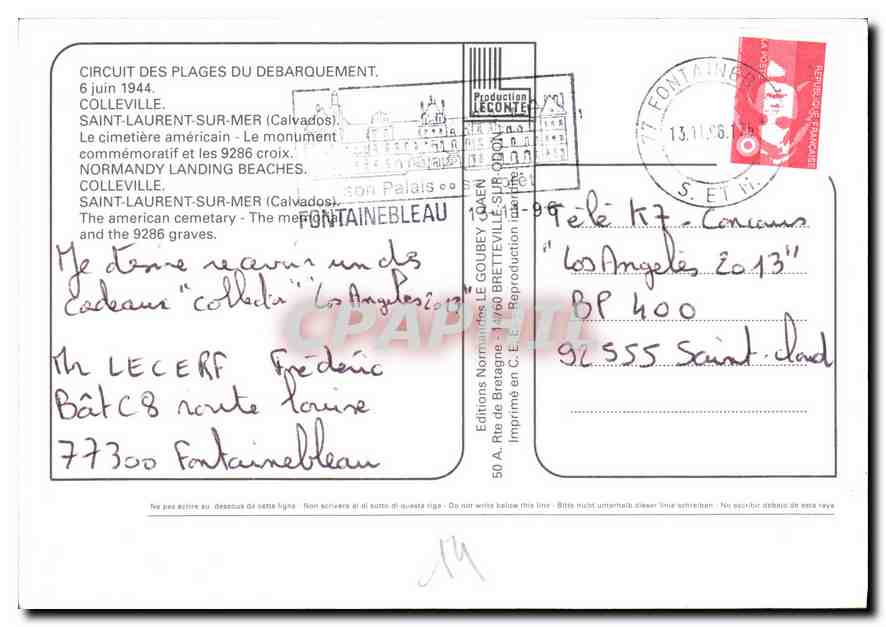 CIRCUIT DES PLAGES DU DEBARQUEMENT.
6 juin 1944.
COLLEVILLE.
SAINT-LAURENT-SUR-MER (Calvados).
Le cimetière américain - Le monument
commémoratif et les 9286 croix.
NORMANDY LANDING BEACHES.
COLLEVILLE.
SAINT-LAURENT-SUR-MER (Calvados).
The american cemetary - The memorial
and the 9286 graves.
Production
LECONTE
son Palais
FONTAINEBLEAU 13-11-96
77 FONTAINEB
13.11.96
S. ET M.
LA POSTE
REPUBLIQUE FRANÇAISE
Je désire recevoir un des
cadeaux "collector" "Los Angeles 2013"
Mr LECERF Frédéric
Bât C8 route louise
77300 Fontainebleau
Editions Normandes LE GOUBEY CAEN
50 A. Rte de Bretagne - 14760 BRETTEVILLE-SUR-ODON
Imprimé en C. E. E. - Reproduction interdite
Télé K7 - Concours
"Los Angeles 2013"
BP 400
92 555 Saint-cloud
CPAPHIL
Ne pas écrire au dessous de cette ligne - Non scrivere al di sotto di questa riga - Do not write below this line - Bitte nicht unterhalb dieser linie schreiben - No escribir debajo de esta raya
14